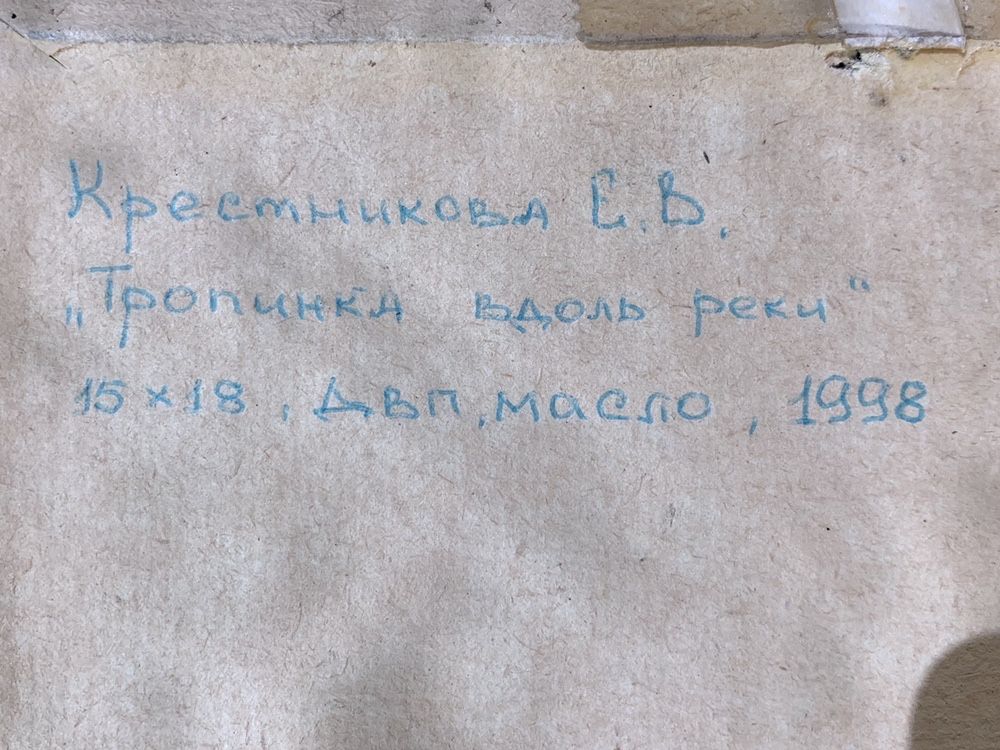 Крестникова Е.В.
„Тропинка вдоль реки“
15×18, ДВП, масло, 1998